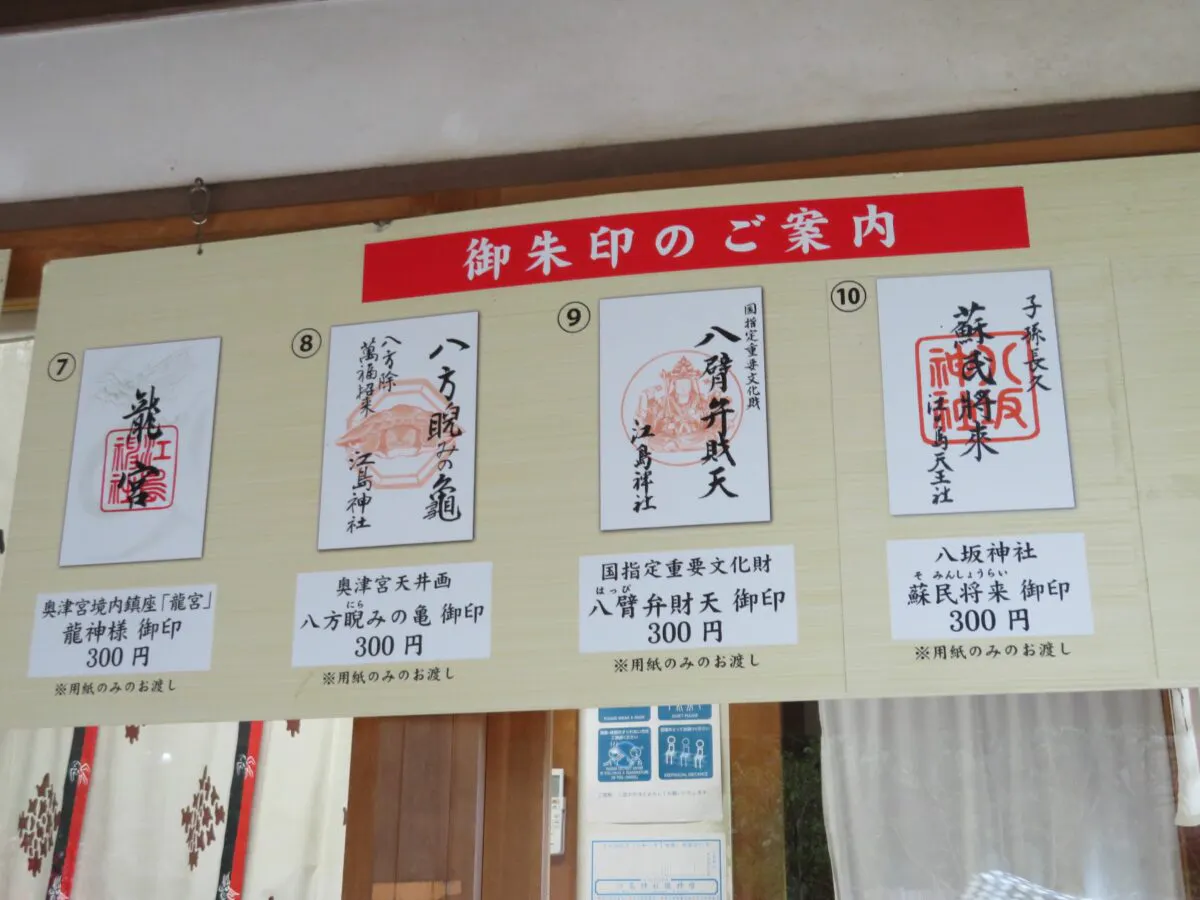 御朱印のご案内
⑦
龍宮
江島神社
奥津宮境内鎮座「龍宮」
龍神様 御印
300 円
※用紙のみのお渡し
⑧
八方睨みの龜
八方除
萬福招来
江島神社
奥津宮天井画
にら
八方睨みの亀 御印
300 円
※用紙のみのお渡し
⑨
国指定重要文化財
八臂弁財天
江島神社
国指定重要文化財
はっぴ
八臂弁財天 御印
300 円
※用紙のみのお渡し
⑩
子孫長久
蘇民将来
八坂神社
江島天王社
八坂神社
そ みんしょうらい
蘇民将来 御印
300 円
※用紙のみのお渡し
KEEP SOCIAL DISTANCE